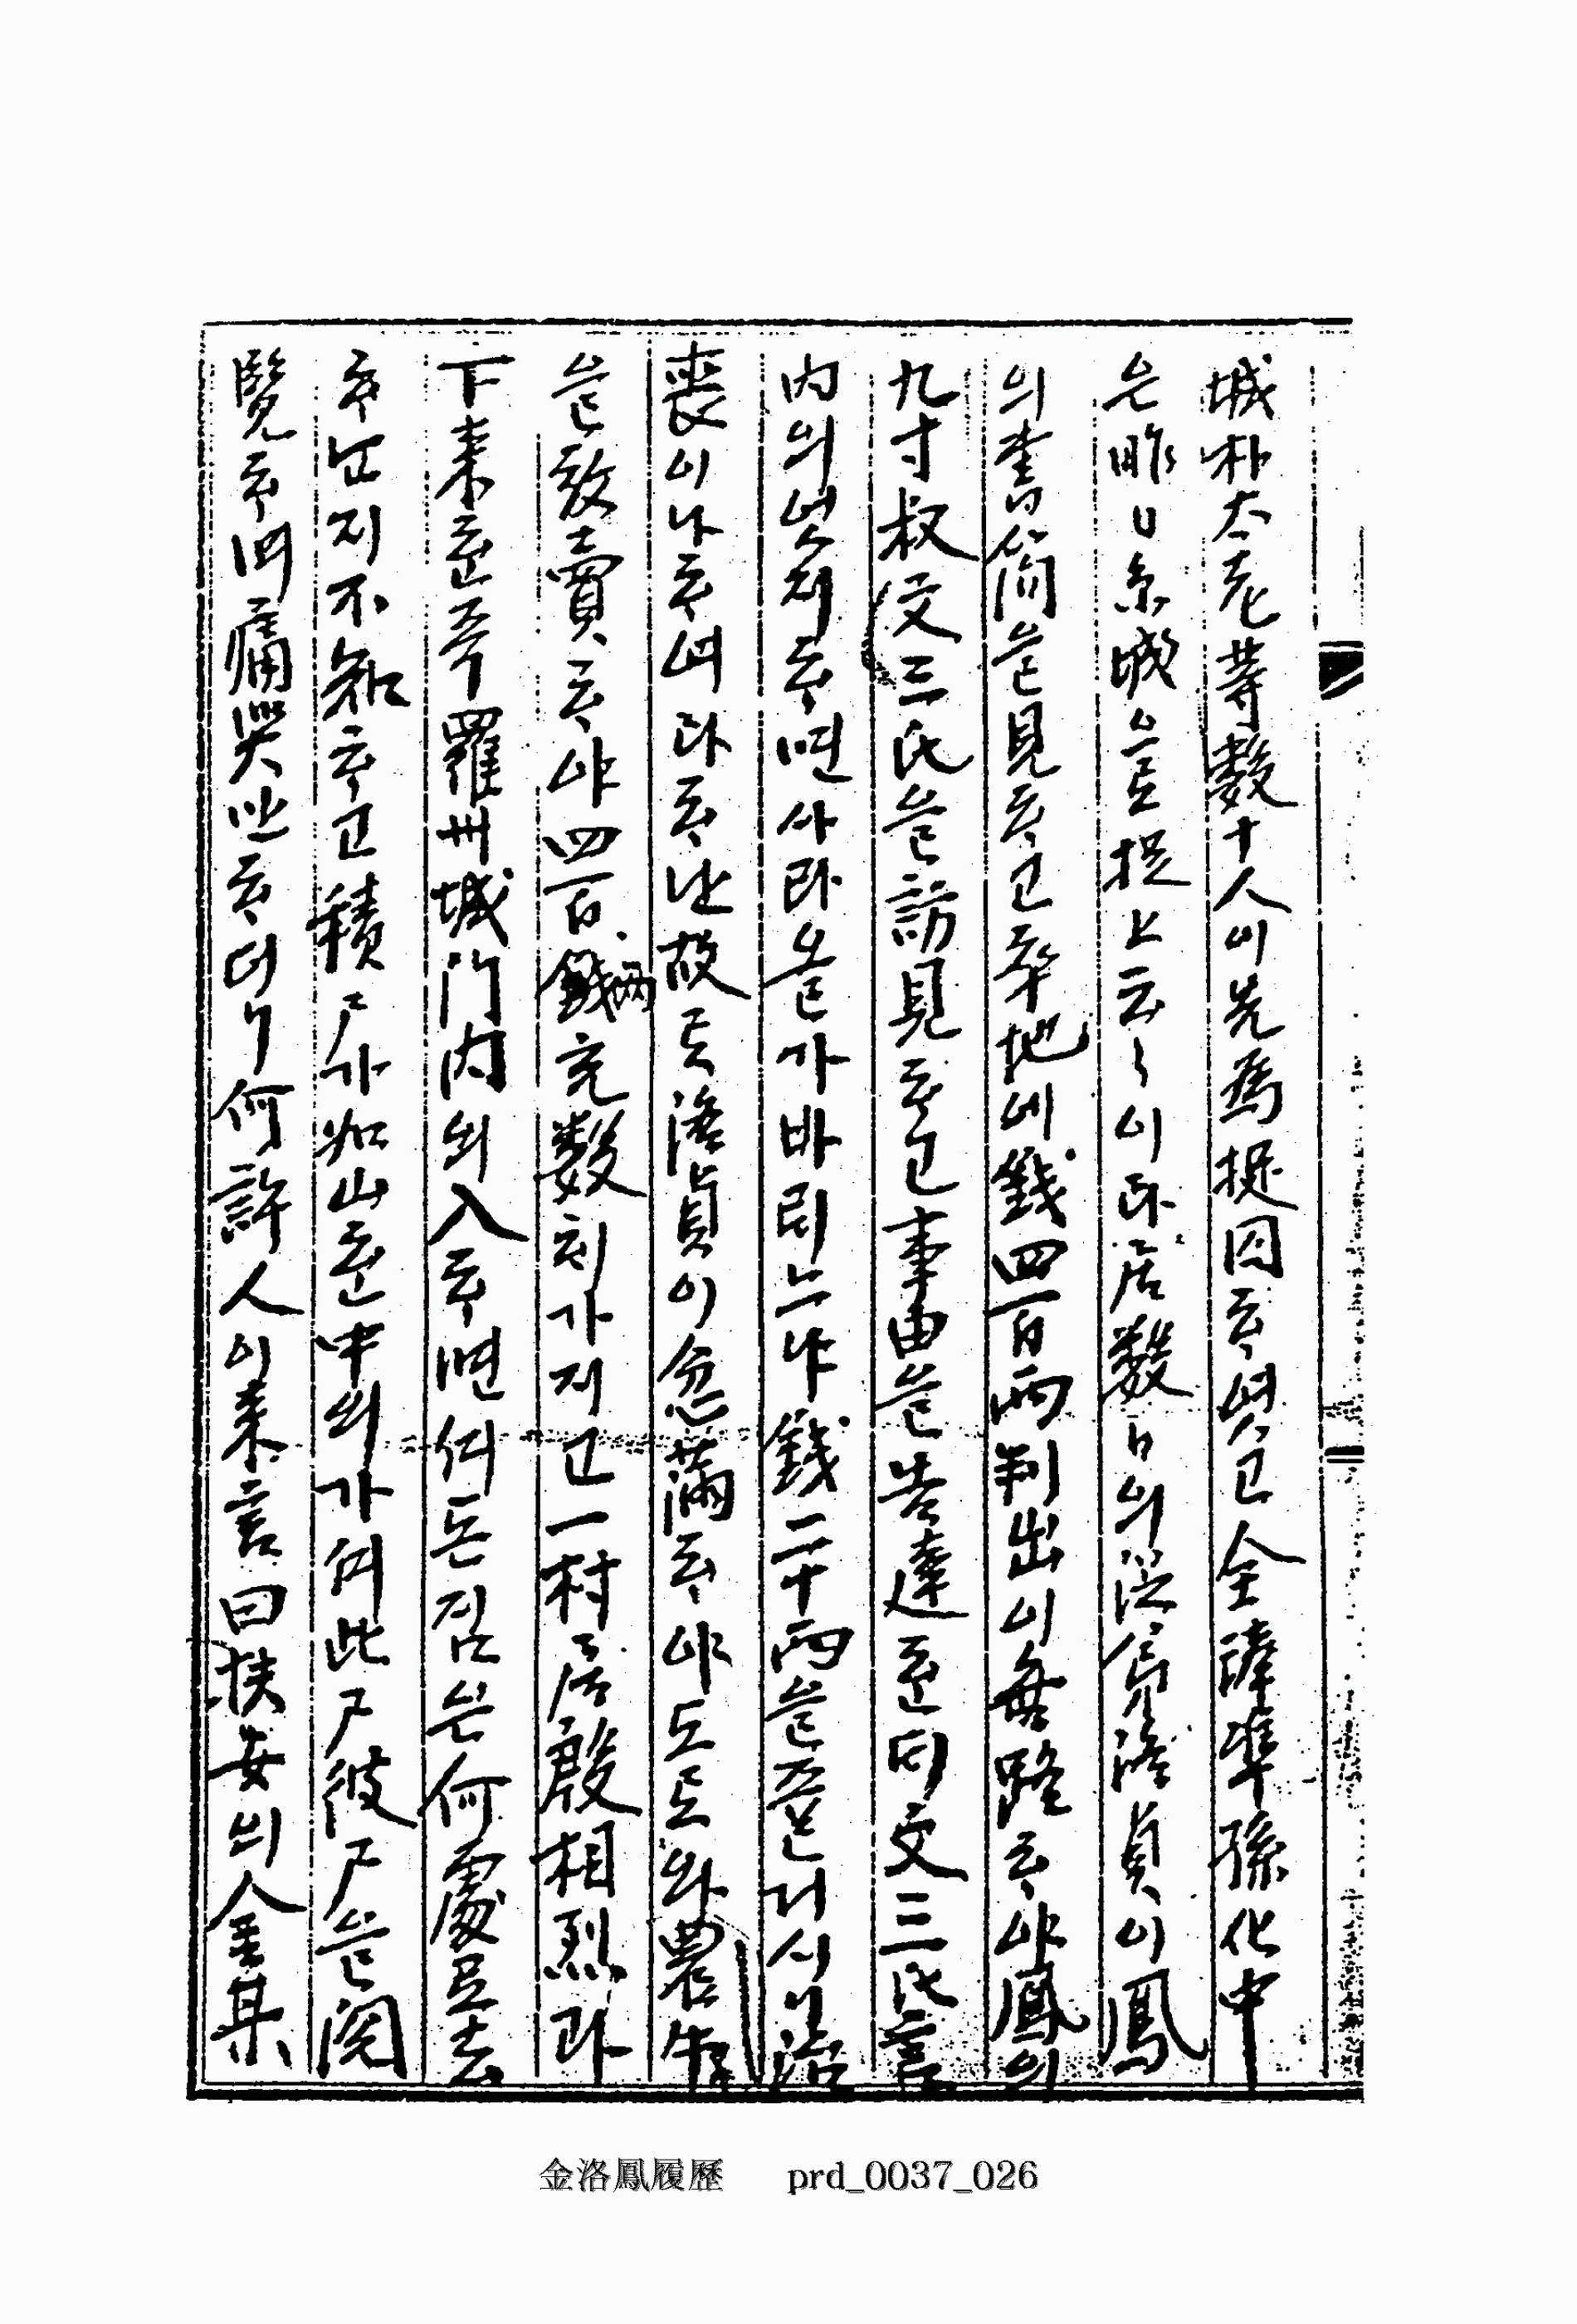 城朴太老等數十人이先爲捉囚ᄒᆞ엿고全琫準孫化中
은昨日京城으로捉上云云이라居數日의從弟洛貞이鳳
의書簡을見ᄒᆞ고卒地에錢四百兩判出이無路ᄒᆞ야鳳의
九寸叔文三氏을訪見ᄒᆞ고事由을告達ᄒᆞᆫᄃᆡ文三氏言
内의엇지ᄒᆞ면사라올가바리ᄂᆞ냐錢二十兩을쥬운거시
喪이나ᄒᆞ여라ᄒᆞ난故로洛貞이忿滿ᄒᆞ야도로와農牛
을放賣ᄒᆞ야四百錢兩充數히가지고一村居殷相烈과
下來ᄒᆞᆫ즉羅州城門内의入ᄒᆞ면셔도짐은何處로去
ᄒᆞᆫ지不知ᄒᆞ고積尸가如山ᄒᆞᆫ中의가셔此尸彼尸을閱
覽ᄒᆞ며痛哭ᄒᆞ더니何許人이來言曰扶安의金某